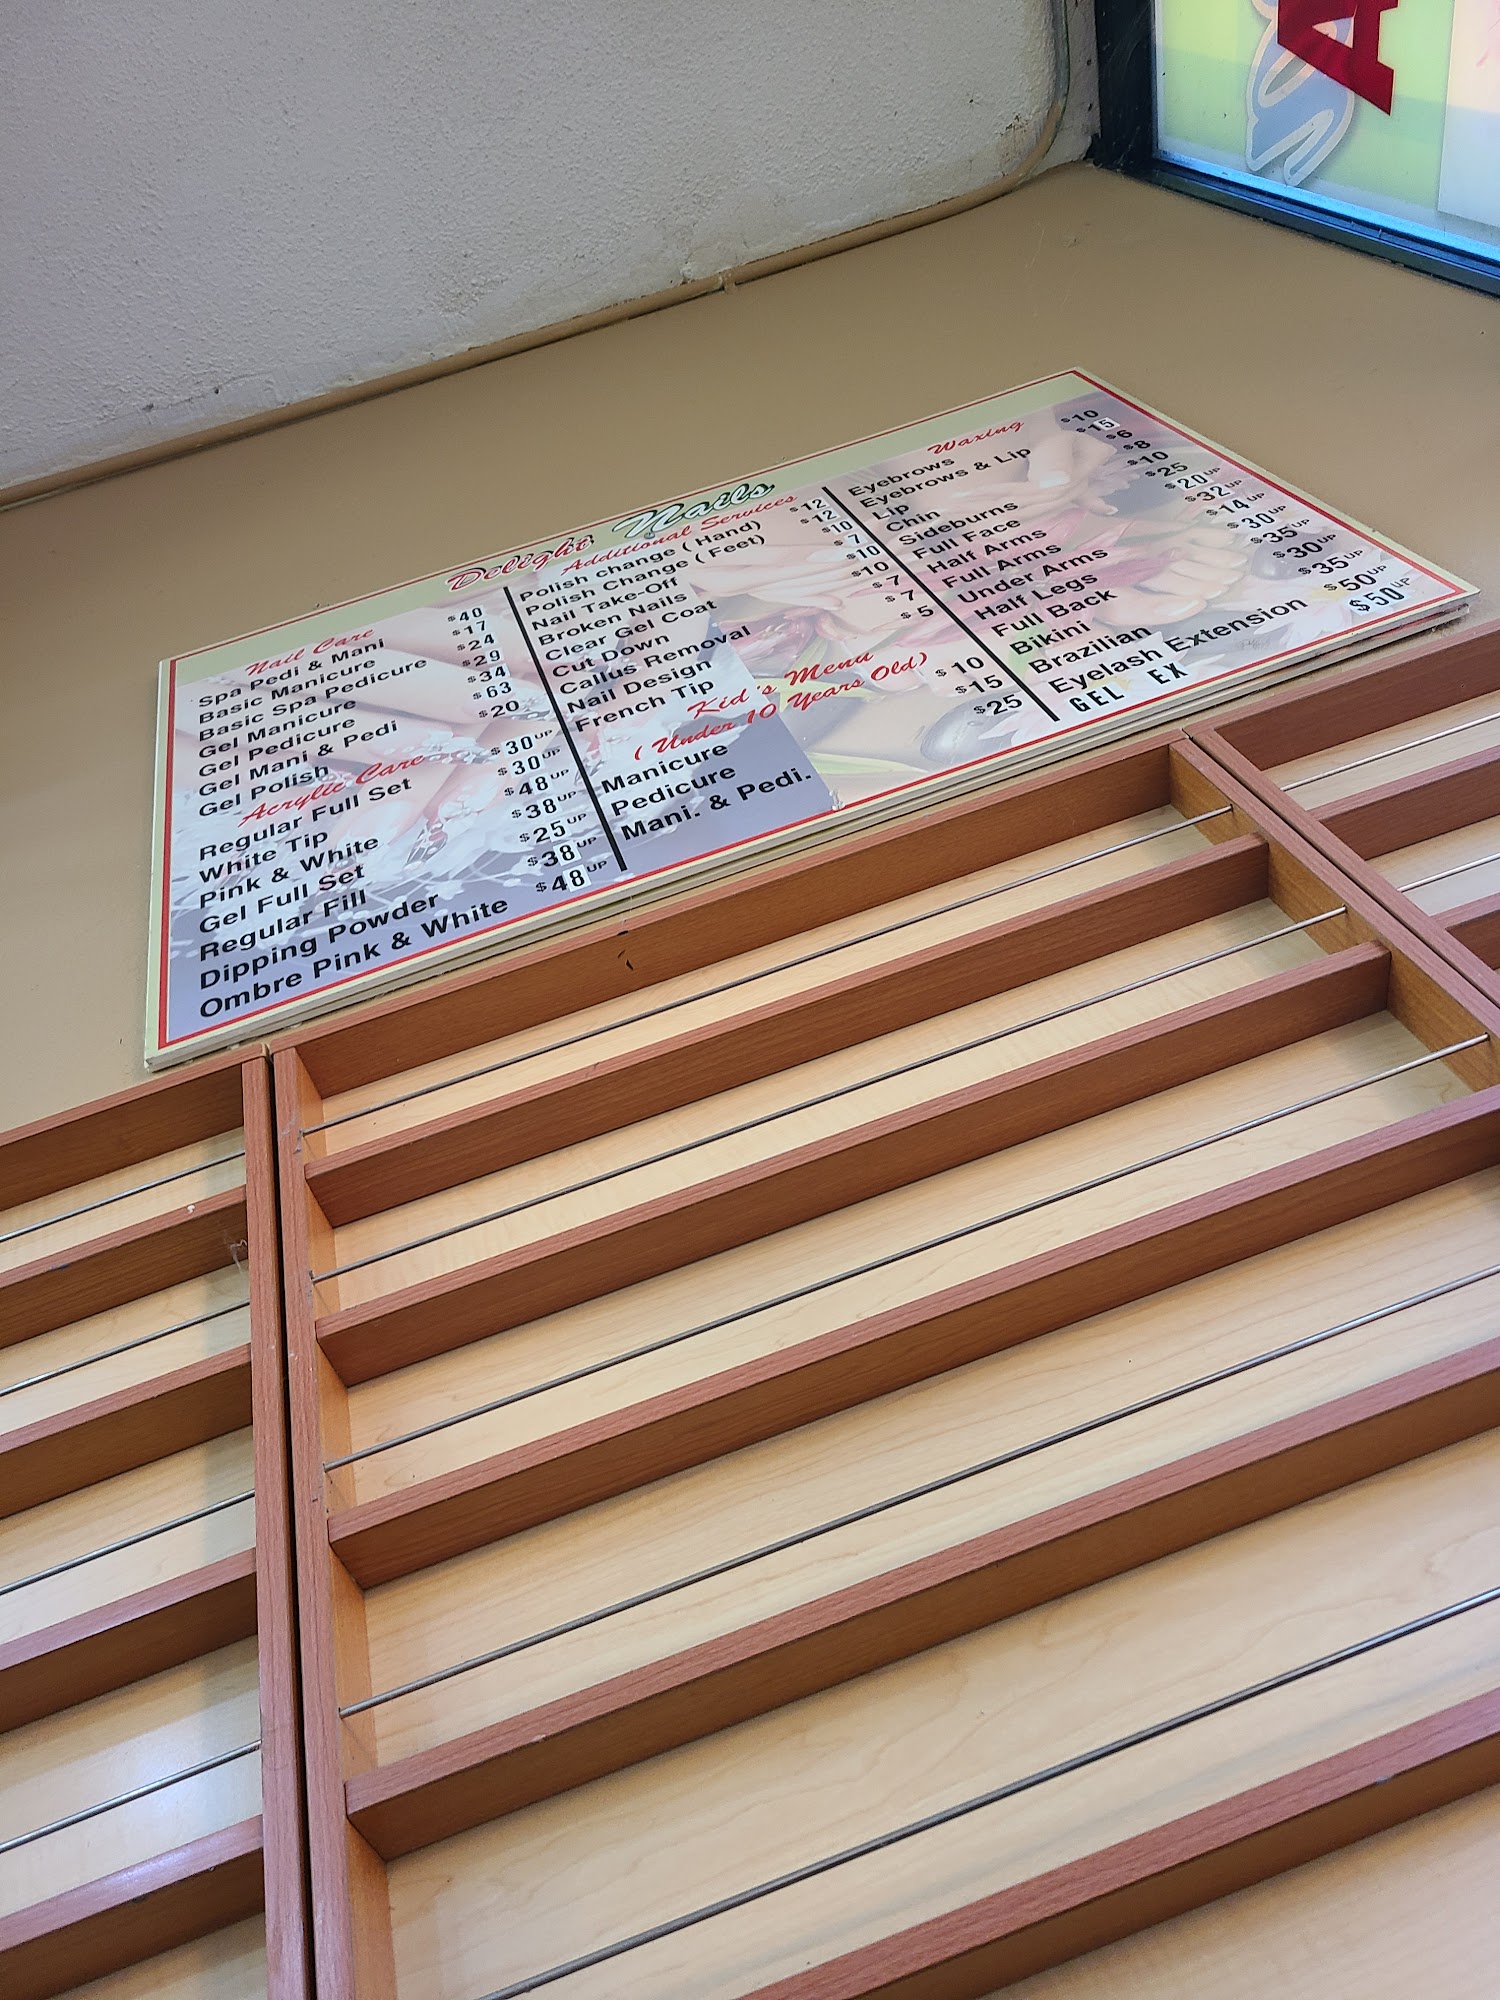 Delight Nails
Nail Care
Spa Pedi & Mani $40
Basic Manicure $17
Basic Spa Pedicure $24
Gel Manicure $29
Gel Pedicure $34
Gel Mani & Pedi $63
Gel Polish $20
Acrylic Care
Regular Full Set $30 UP
White Tip $30 UP
Pink & White $48 UP
Gel Full Set $38 UP
Regular Fill $25 UP
Dipping Powder $38 UP
Ombre Pink & White $48 UP
Additional Services
Polish change ( Hand) $12
Polish Change ( Feet) $12
Nail Take-Off $10
Broken Nails $7
Clear Gel Coat $10
Cut Down $10
Callus Removal $7
Nail Design $7
French Tip $5
Kid's Menu
( Under 10 Years Old)
Manicure $10
Pedicure $15
Mani. & Pedi. $25
Waxing
Eyebrows $10
Eyebrows & Lip $15
Lip $6
Chin $8
Sideburns $10
Full Face $25
Half Arms $20 UP
Full Arms $32 UP
Under Arms $14 UP
Half Legs $30 UP
Full Back $35 UP
Bikini $30 UP
Brazilian $35 UP
Eyelash Extension $50 UP
GEL EX $50 UP
A